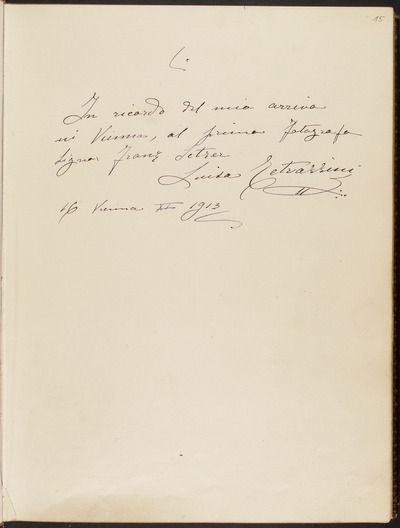 15
In ricordo del mio arrivo
in Vienna, al primo fotografo
Signor Franz Setzer
Luisa Tetrazzini
16 Vienna XII 1913